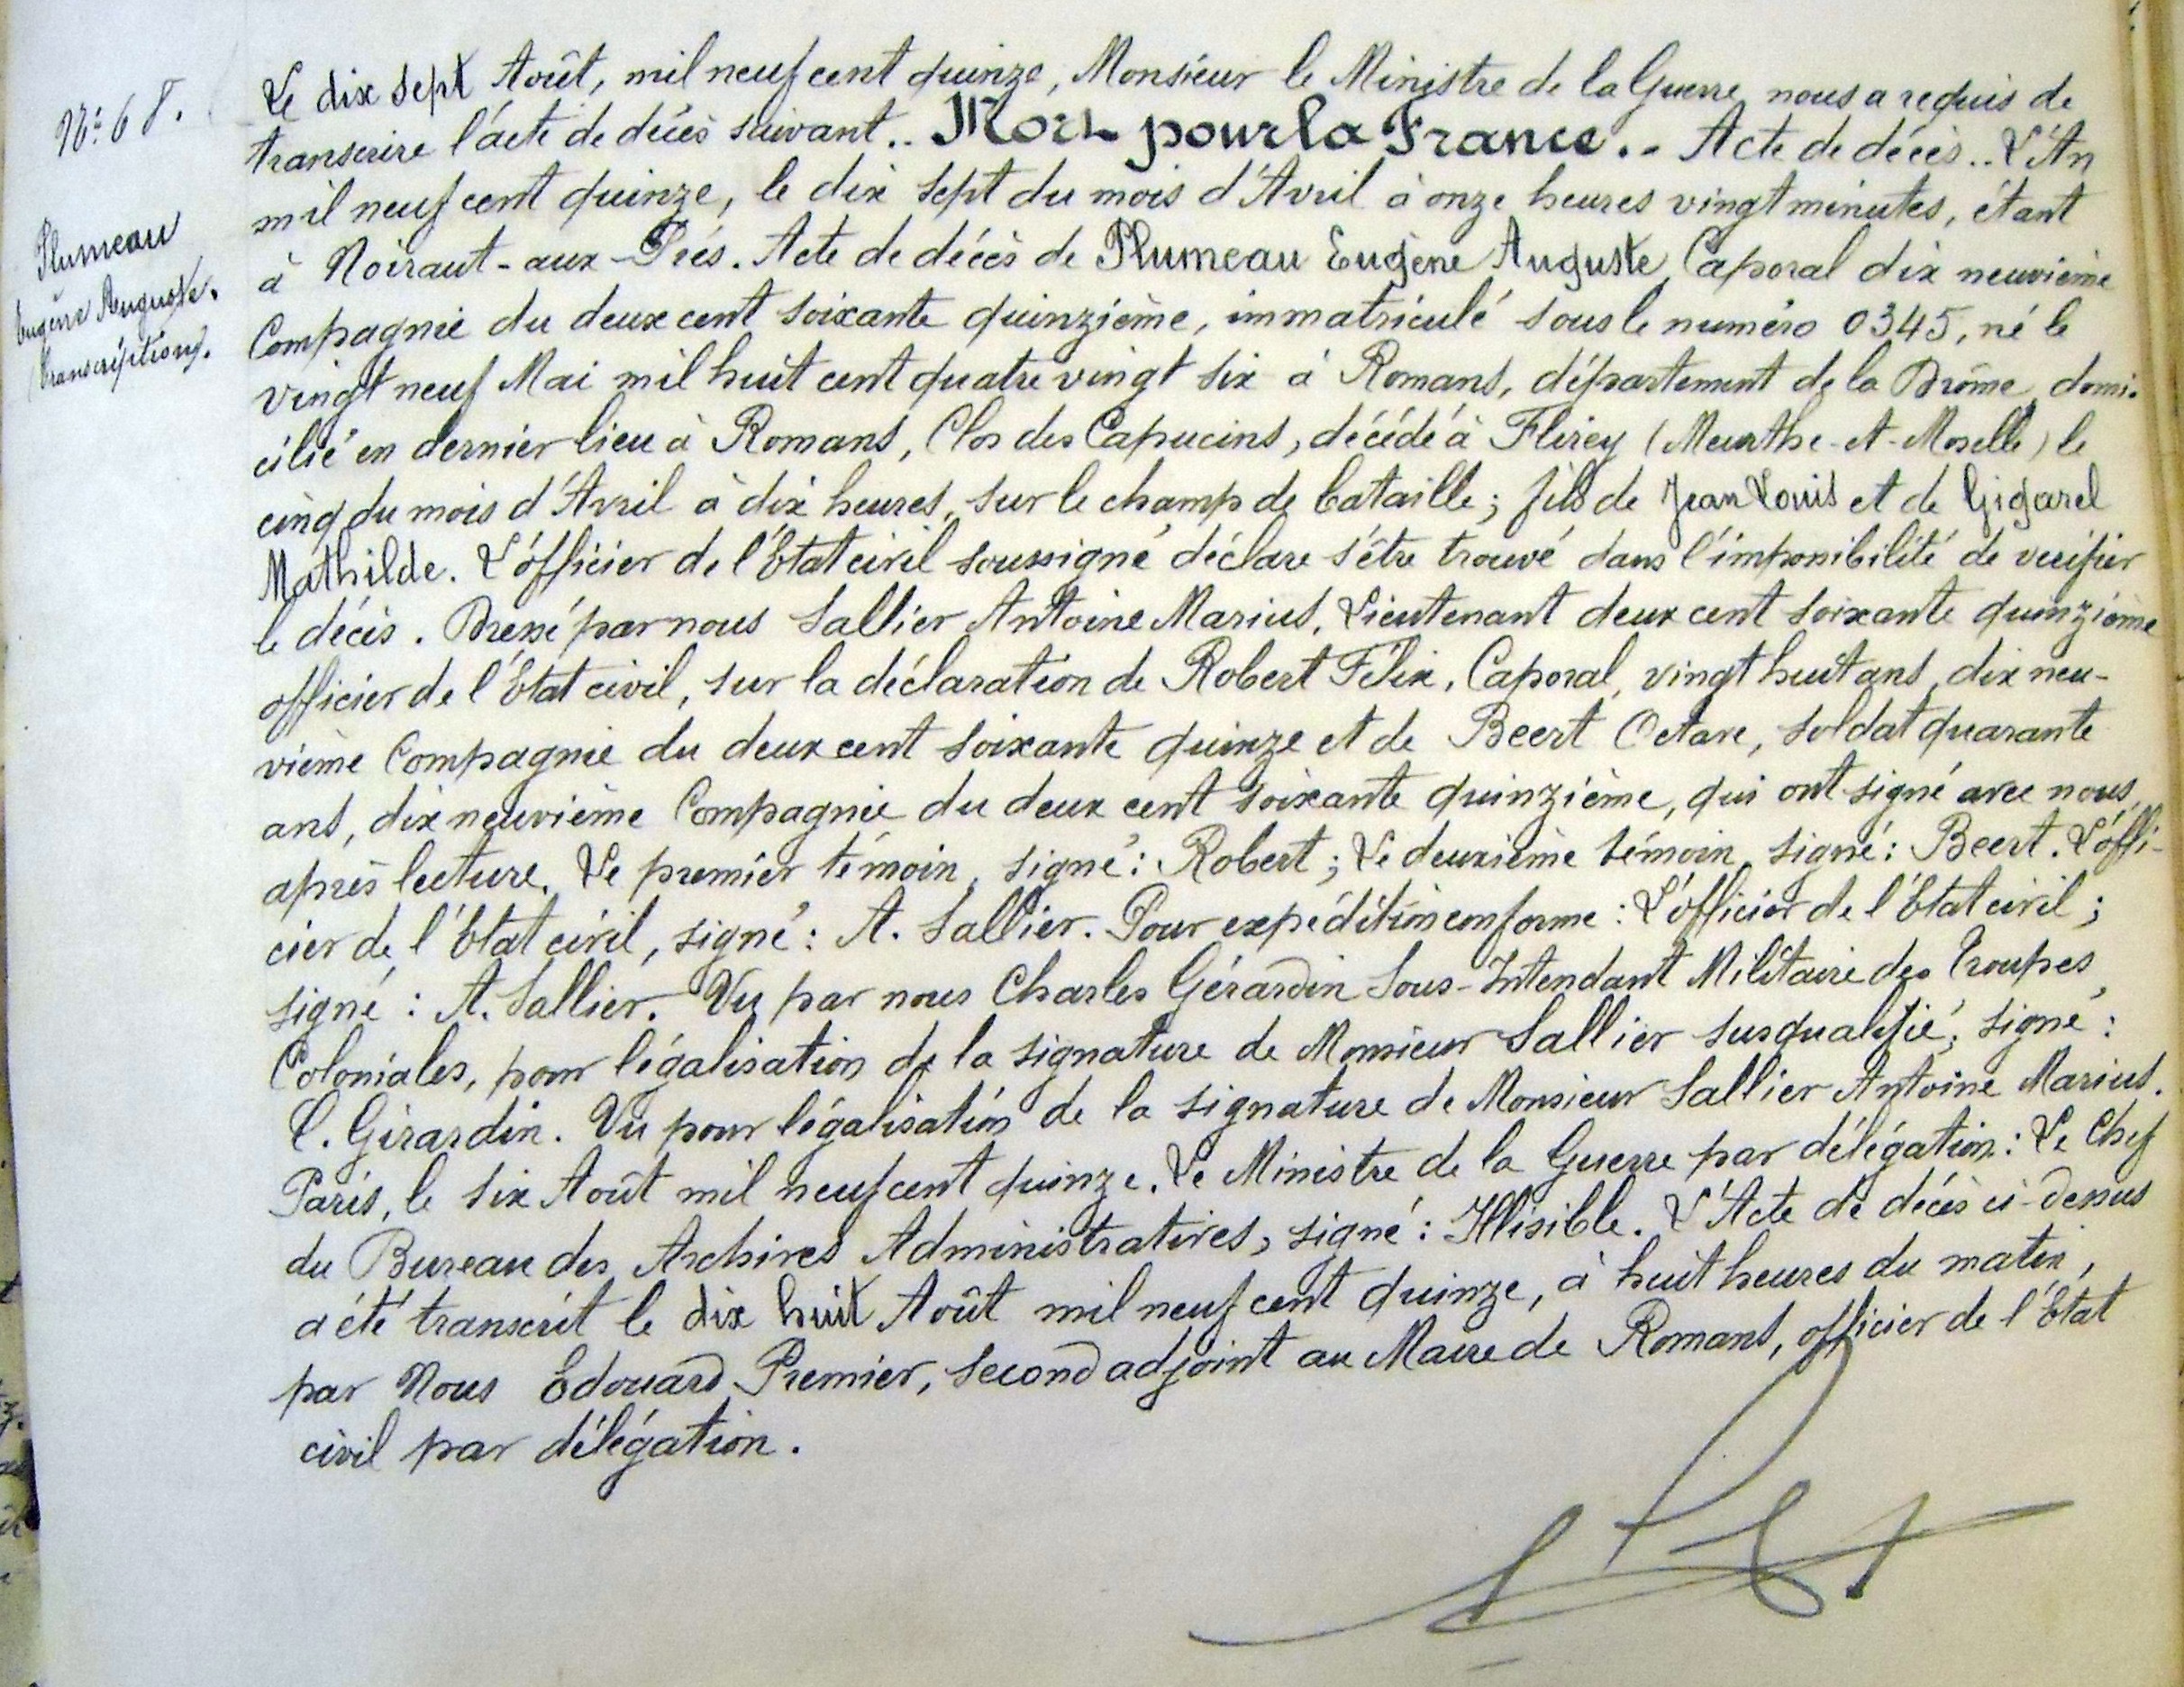 N° 68.
Plumeau
Eugène Auguste.
(transcription).
Le dix sept Août, mil neuf cent quinze, Monsieur le Ministre de la Guerre nous a requis de
transcrire l'acte de décès suivant.. Mort pour la France.. Acte de décès.. L'An
mil neuf cent quinze, le dix sept du mois d'Avril à onze heures vingt minutes, étant
à Noiraut-aux-Prés. Acte de décès de Plumeau Eugène Auguste, Caporal dix neuvième
Compagnie du deux cent soixante quinzième, immatriculé sous le numéro 0345, né le
vingt neuf Mai mil huit cent quatre vingt six à Romans, département de la Drôme, domi-
cilié en dernier lieu à Romans, Clos des Capucins, décédé à Flirey (Meurthe-et-Moselle) le
cinq du mois d'Avril à dix heures, sur le champ de bataille; fils de Jean Louis et de Gigarel
Mathilde. L'officier de l'Etat civil soussigné déclare s'être trouvé dans l'impossibilité de verifier
le décès. Dressé par nous Sallier Antoine Marius, Lieutenant deux cent soixante quinzième
officier de l'Etat civil, sur la déclaration de Robert Félix, Caporal, vingt huit ans, dix neu-
vième Compagnie du deux cent soixante quinze et de Beert Octave, soldat quarante
ans, dix neuvième Compagnie du deux cent soixante quinzième, qui ont signé avec nous,
après lecture. Le premier témoin, signé: Robert; Le deuxième témoin, signé: Beert. L'offi-
cier de l'Etat civil, signé: A. Sallier. Pour expédition conforme: L'officier de l'Etat civil;
signé: A. Sallier. Vu par nous Charles Gérardin Sous-Intendant Militaire des Troupes
Coloniales, pour légalisation de la signature de Monsieur Sallier susqualifié, signé:
C. Girardin. Vu pour légalisation de la signature de Monsieur Sallier Antoine Marius.
Paris, le six Août mil neuf cent quinze. Le Ministre de la Guerre par délégation: Le Chef
du Bureau des Archives Administratives, signé: Illisible. L'Acte de décès ci-dessus
a été transcrit le dix huit Août mil neuf cent quinze, à huit heures du matin,
par Nous Edouard Premier, second adjoint au Maire de Romans, officier de l'Etat
civil par délégation.